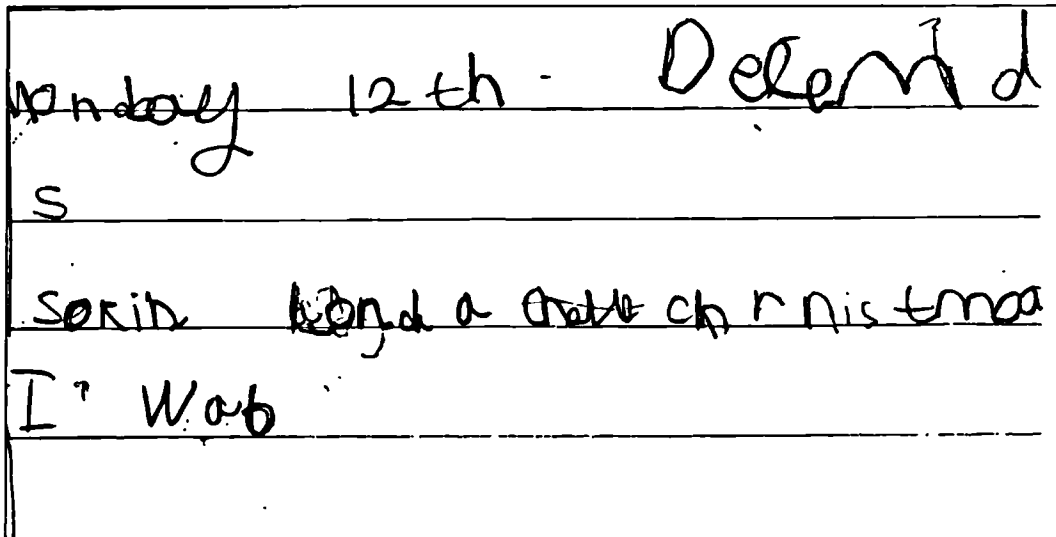 Monday 12th Decemd
s
sokin a chrnistmoa
I Wab